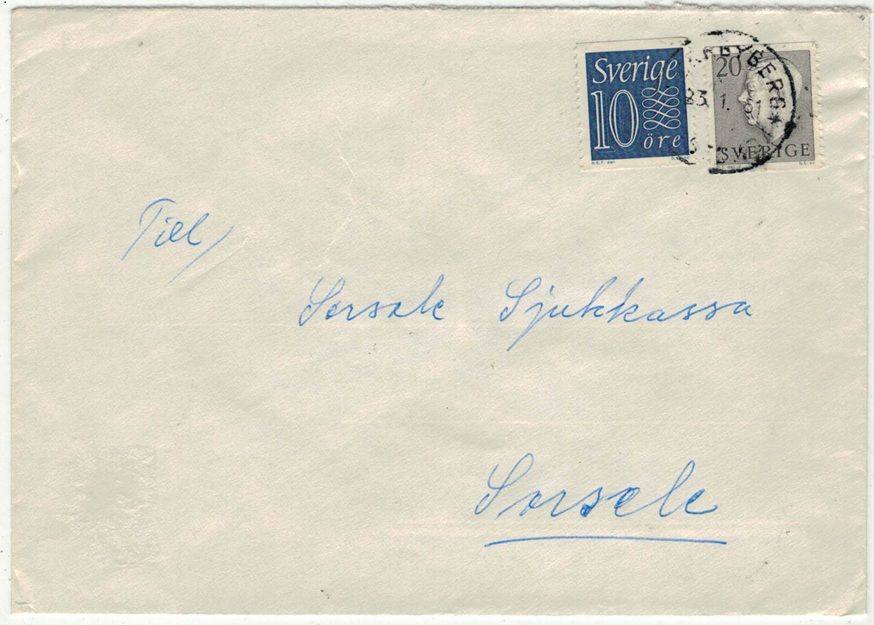 Sverige
10
öre
20
SVERIGE
23. 1.
Till/
Sorsele Sjukkassa
Sorsele